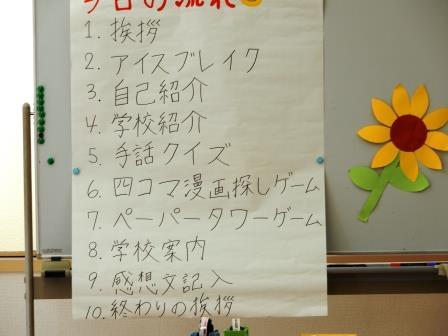 今日の流れ
1. 挨拶
2. アイスブレイク
3. 自己紹介
4. 学校紹介
5. 手話クイズ
6. 四コマ漫画探しゲーム
7. ペーパータワーゲーム
8. 学校案内
9. 感想文記入
10. 終わりの挨拶